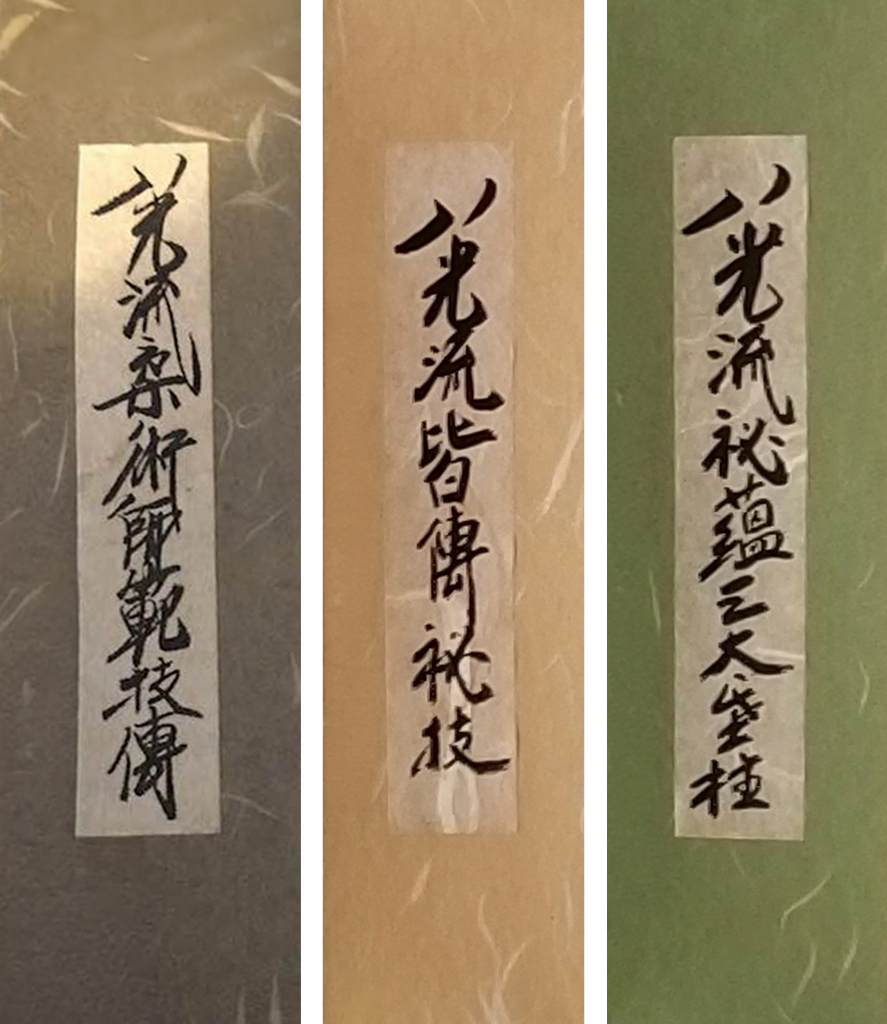 八光流柔術師範技傳
八光流皆傳祕技
八光流祕蘊三大基柱